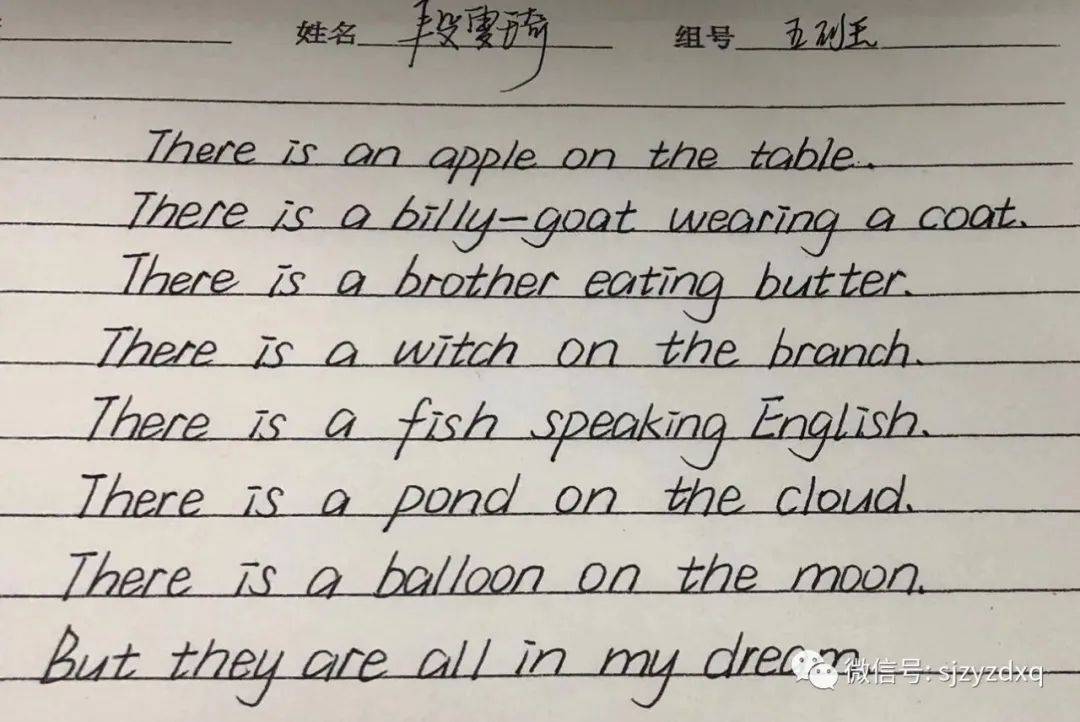 姓名 段雯琦 组号 五班
There is an apple on the table.
There is a billy-goat wearing a coat.
There is a brother eating butter.
There is a witch on the branch.
There is a fish speaking English.
There is a pond on the cloud.
There is a balloon on the moon.
But they are all in my dream.
微信号: sjzyzdxq